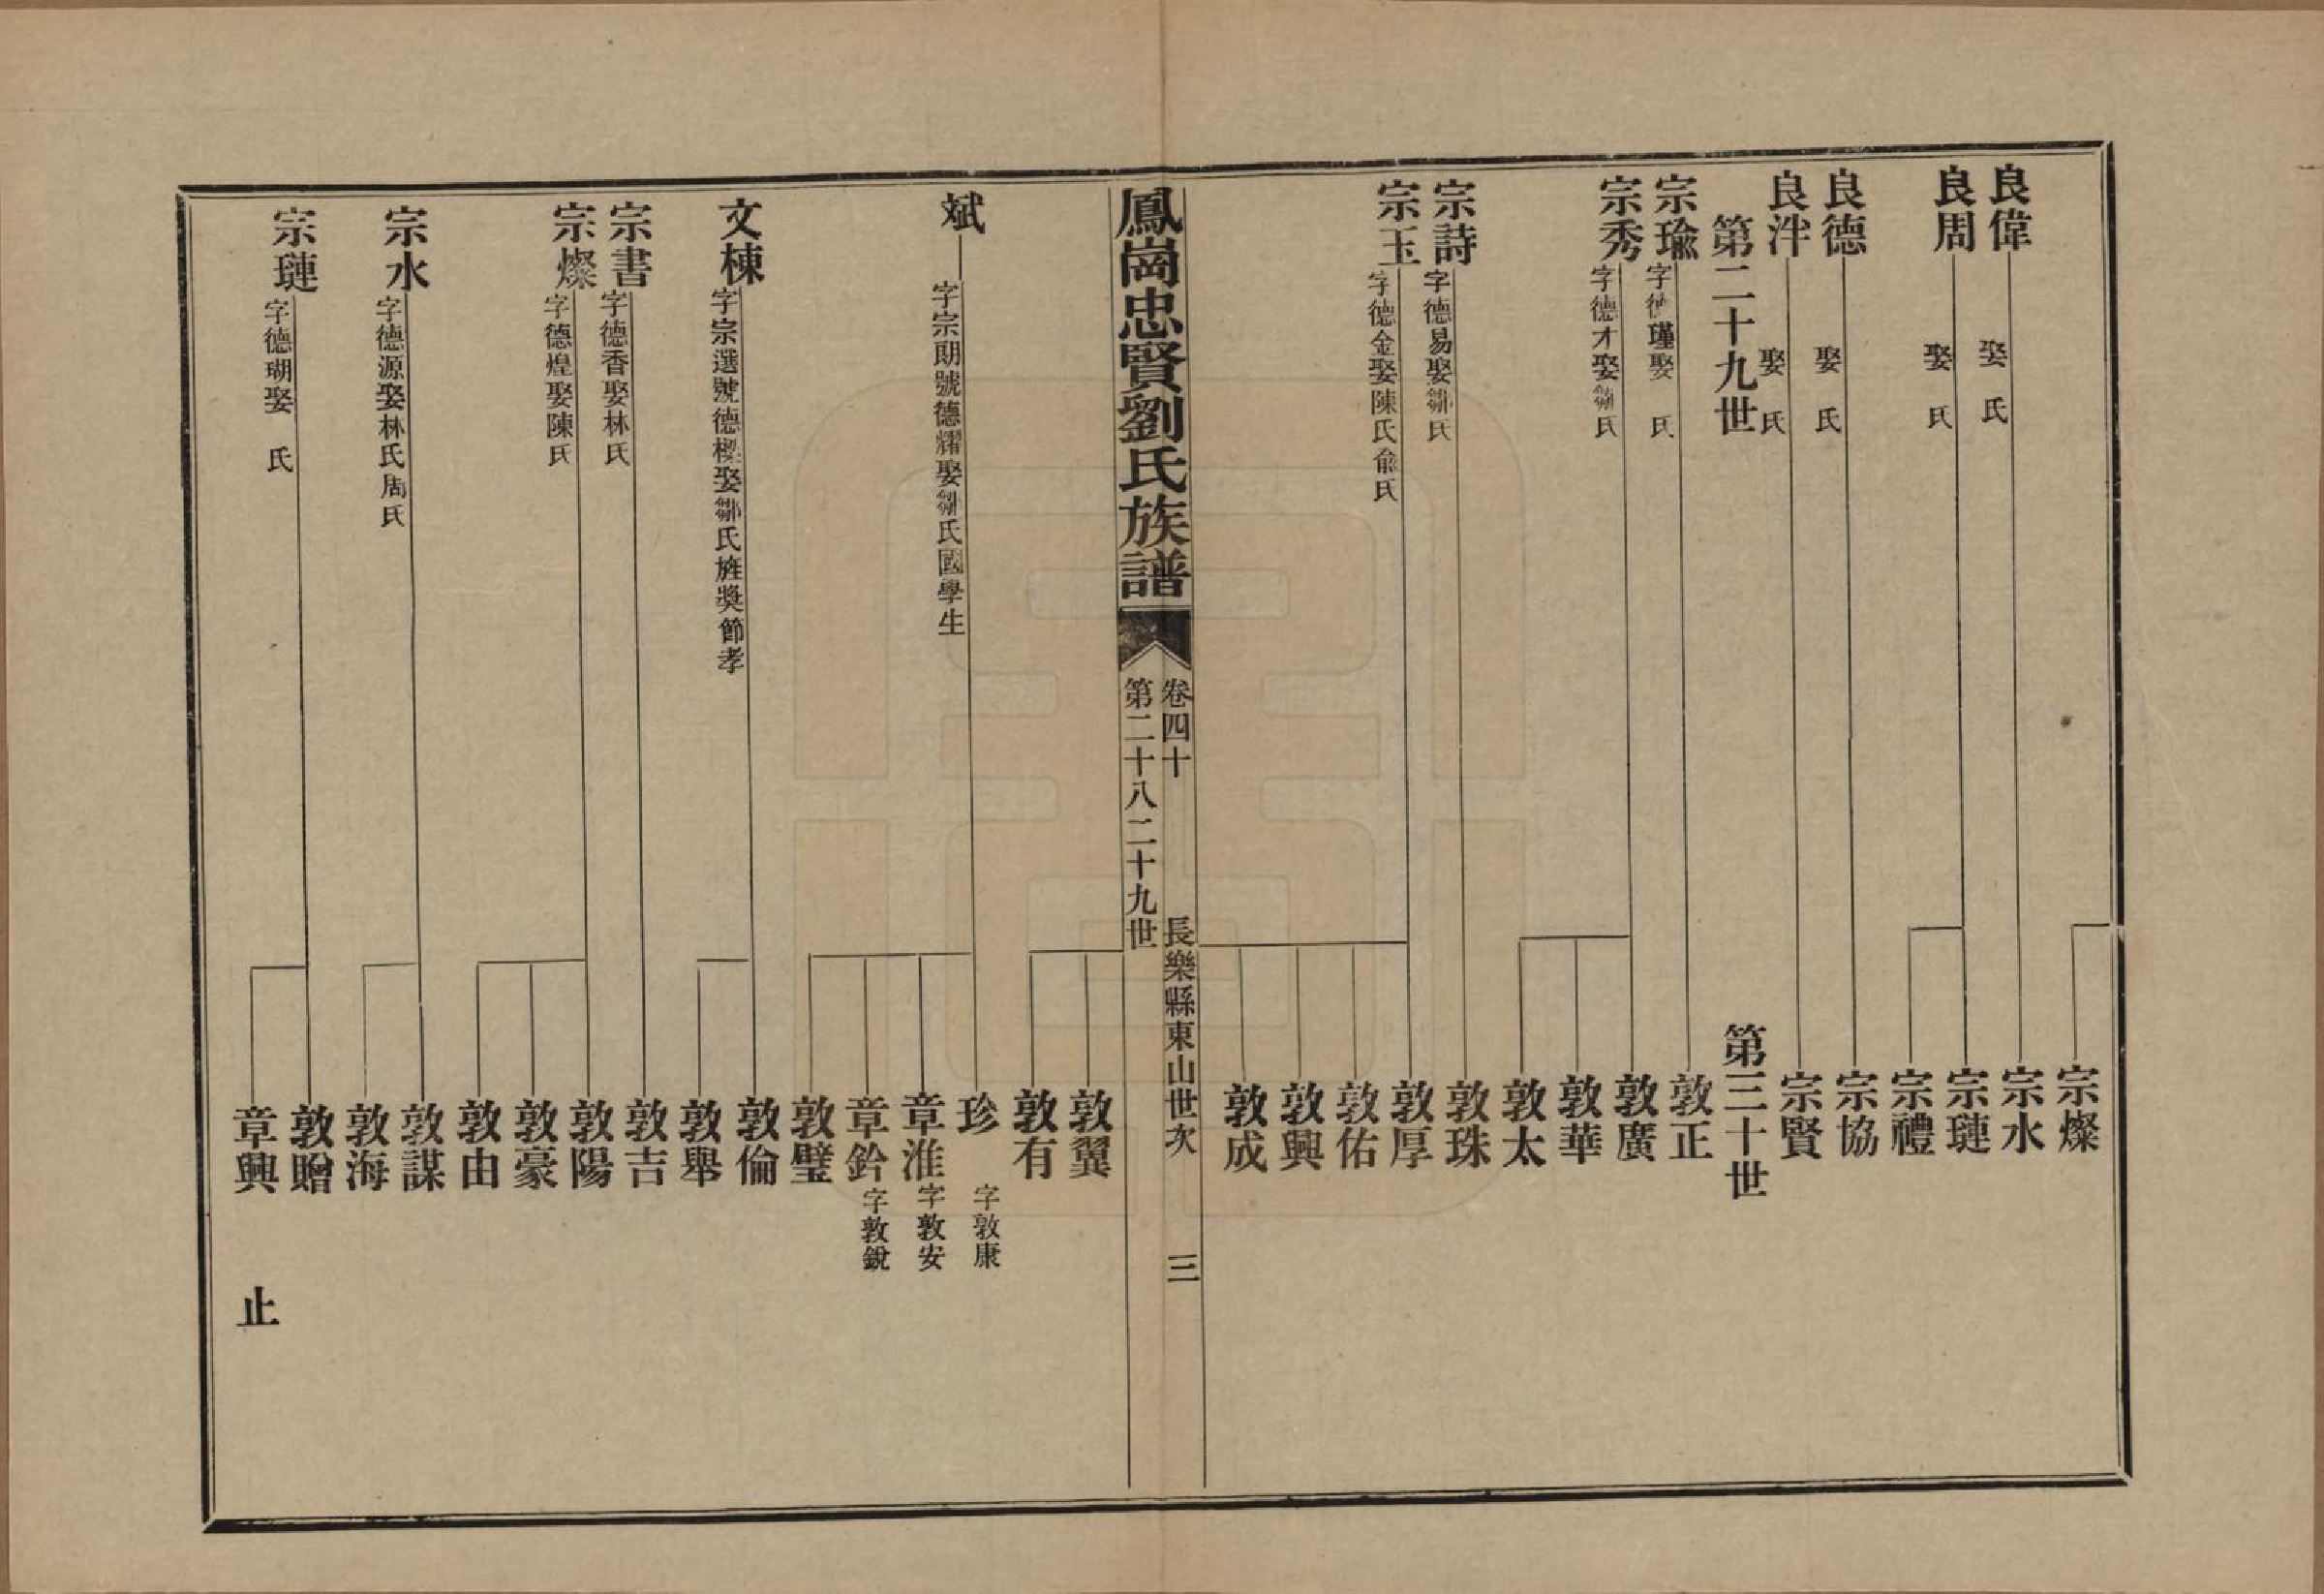 宗燦
良偉
娶　氏
宗水
良周
娶　氏
宗璉
宗禮
良德
娶　氏
宗協
良泮
娶　氏
宗賢
第二十九世
第三十世
宗瑜
字德瑾娶　氏
敦正
宗秀
字德才娶鄒氏
敦廣
敦華
敦太
宗詩
字德易娶鄒氏
敦珠
宗玉
字德金娶陳氏俞氏
敦厚
敦佑
敦興
敦成
鳳崗忠賢劉氏族譜
卷四十
長樂縣東山世次
三
第二十八二十九世
敦翼
敦有
斌
字宗朗號德耀娶鄒氏國學生
珍
字敦康
章淮
字敦安
章鈐
字敦銳
敦璧
文棟
字宗選號德樑娶鄒氏旌獎節孝
敦倫
敦舉
宗書
字德香娶林氏
敦吉
宗燦
字德煌娶陳氏
敦陽
敦豪
敦由
宗水
字德源娶林氏周氏
敦謀
敦海
宗璉
字德瑚娶　氏
敦贈
章興
止